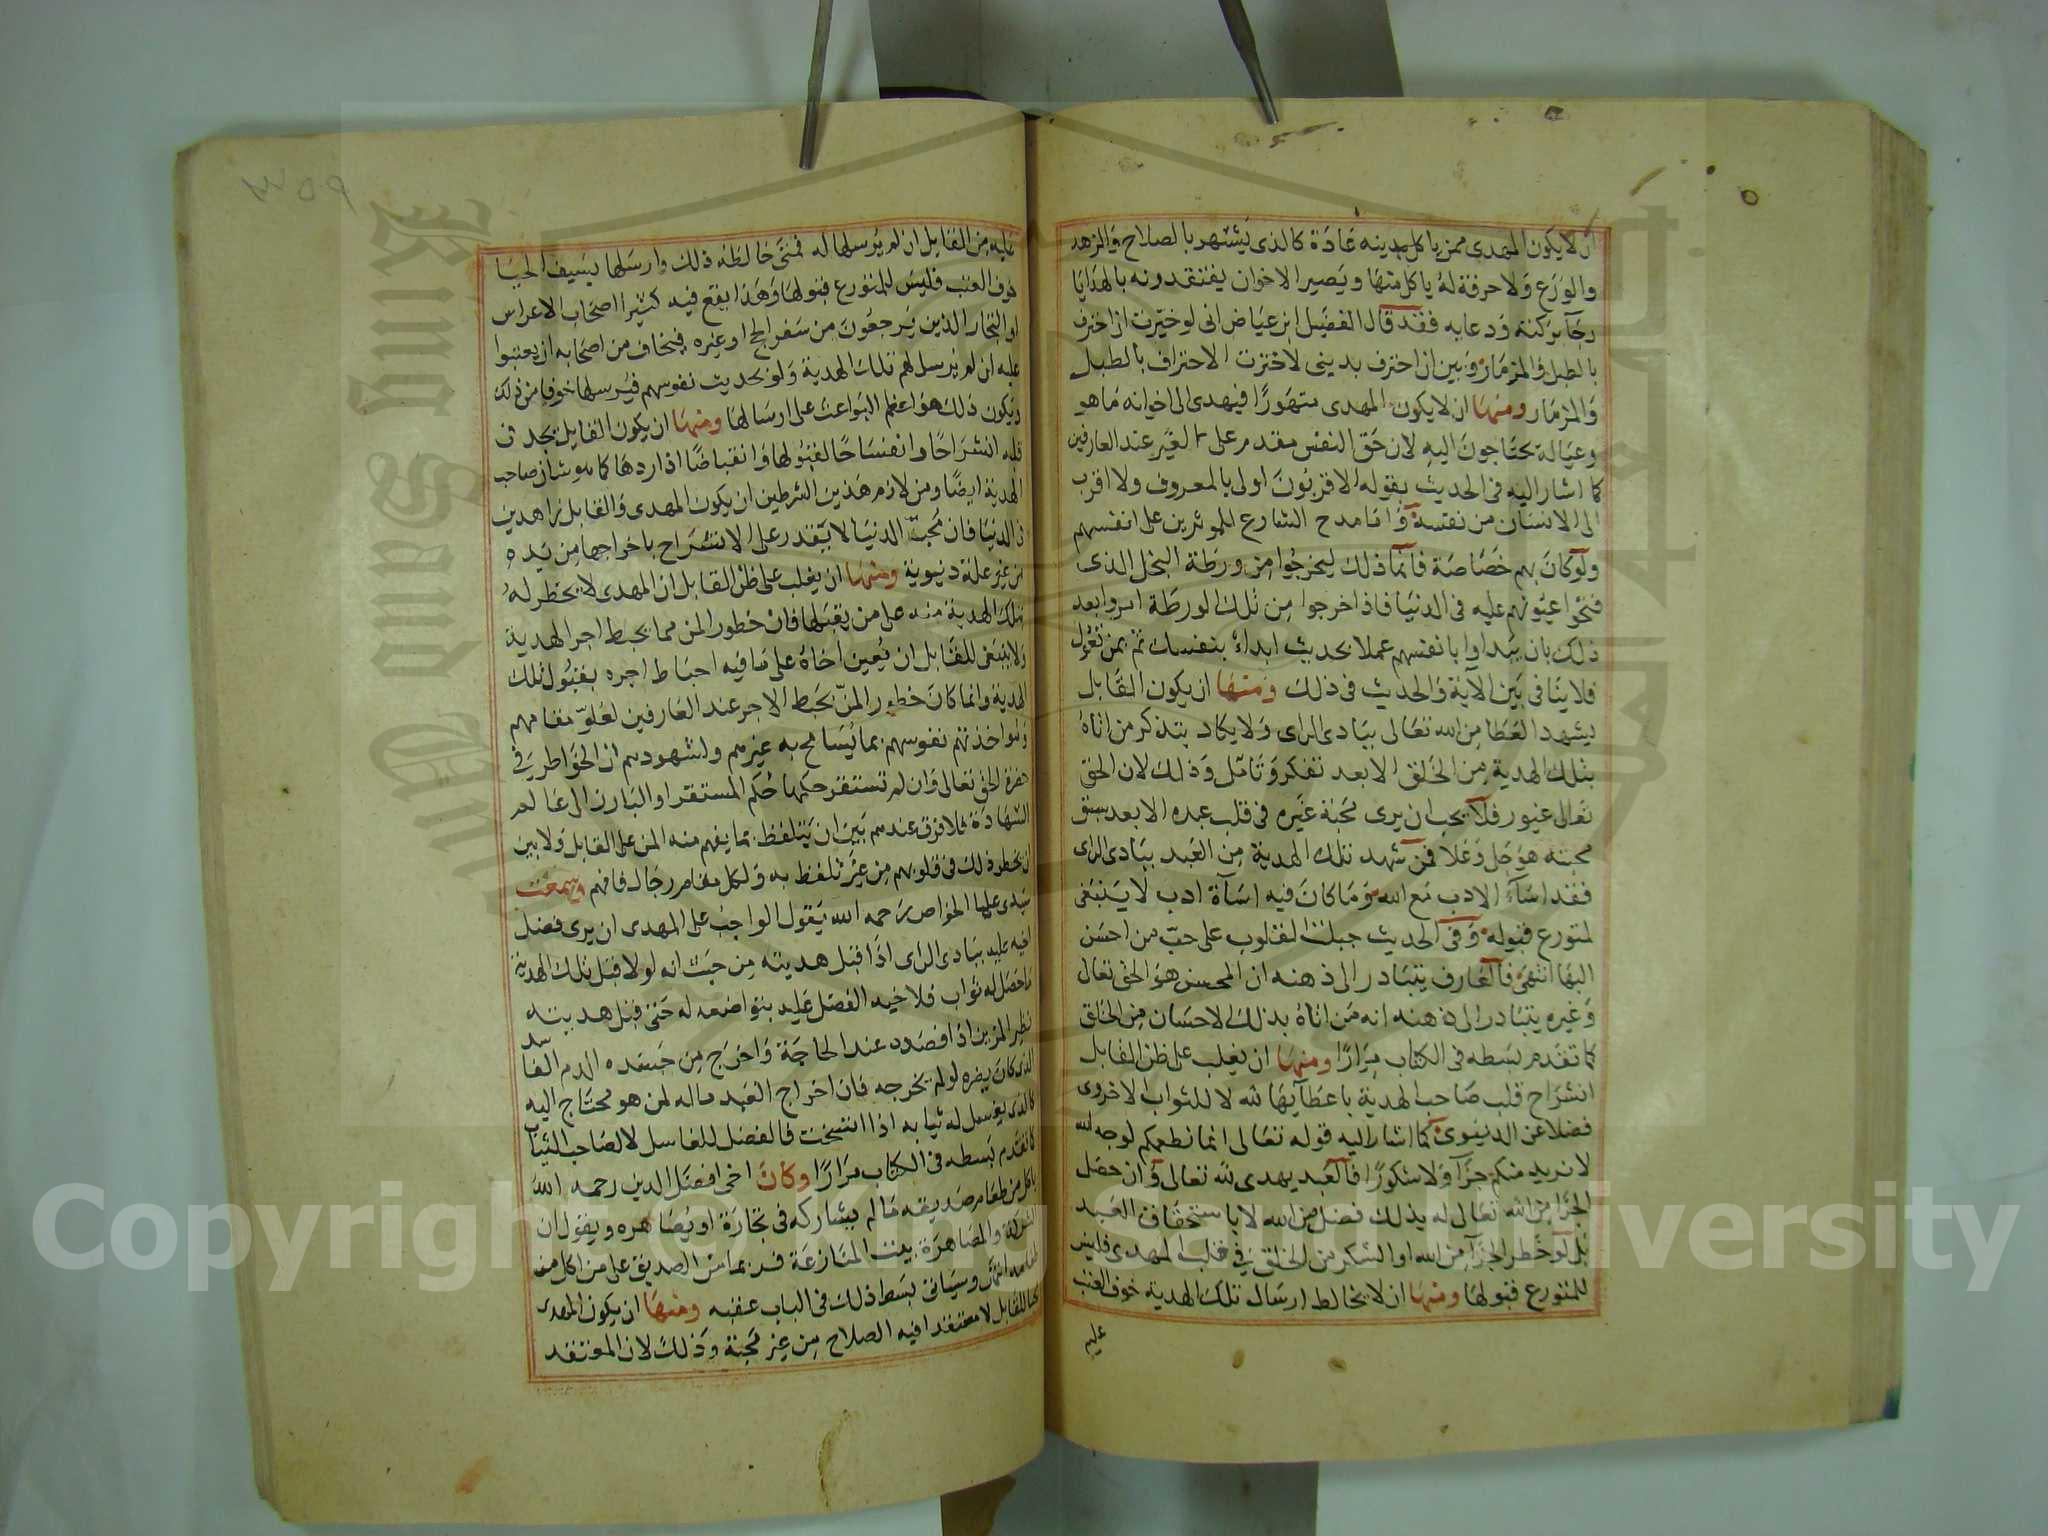 ان لا يكون المهدى ممن ياكل بدينه عادة كالذى يشتهر بالصلاح والزهد
والورع ولا حرفة له ياكل منها ويصير الاخوان يفتقدونه بالهدايا
رجآ بركته ودعايه فقد قال الفضيل ابن عياض انى لو خيرت ان احترف
بالطبل والمزمار وبين ان احترف بدينى لاخترت الاحتراف بالطبل
والمزمار ومنها ان لا يكون المهدى متهورا فيهدى الى اخوانه ما هو
وعياله يحتاجون اليه لان حق النفس مقدم على الغير عند العارفين
كما اشار اليه فى الحديث بقوله الاقربون اولى بالمعروف ولا اقرب
الى الانسان من نفسه وانما مدح الشارع الموثرين على انفسهم
ولو كان بهم خصاصة فانما ذلك ليخرجوا من ورطة البخل الذى
فتحوا عيونهم عليه فى الدنيا فاذا خرجوا من تلك الورطة امروا بعد
ذلك بان يبداوا بانفسهم عملا بحديث ابداء بنفسك ثم بمن تعول
فلا ينافى بين الآية والحديث فى ذلك ومنها ان يكون القابل
يشهد العطا من الله تعالى ببادى الراى ولا يكاد يتذكر من اتاه
بتلك الهدية من الخلق الا بعد تفكر وتامل وذلك لان الحق
تعالى غيور فلا يحب ان يرى محبة غيره فى قلب عبده الا بعد سبق
محبته هو جل وعلا فمن شهد تلك الهدية من العبد ببادى الراى
فقد اسآء الادب مع الله وما كان فيه اسآة ادب لا ينبغى
لمتورع قبوله وفى الحديث جبلت القلوب على حب من احسن
اليها انتهى فالعارف يتبادر الى ذهنه ان المحسن هو الحق تعالى
وغيره يتبادر الى ذهنه انه من اتاه بذلك الاحسان من الخلق
كما تقدم بسطه فى الكتاب مرارا ومنها ان يغلب على ظن القابل
انشراح قلب صاحب الهدية باعطآيها لله لا للثواب الاخروى
فضلا عن الدنيوى كما اشار اليه قوله تعالى انما نطعمكم لوجه الله
لا نريد منكم جزآ ولا شكورا فالعبد يهدى لله تعالى وان حصل
الجزا من الله تعالى له بذلك فضل من الله لا باستحقاق العبد
بل لو خطر الجزآ من الله او الشكر من الخلق فى قلب المهدى فليس
للمتورع قبولها ومنها ان لا يخالط ارسال تلك الهدية خوف العتب
عليه
عليه من القابل ان لم يرسلها له فمتى خالطه ذلك وارسلها بسيف الحيا
خوف العتب فليس للمتورع قبولها وهذا يقع فيه كثيرا اصحاب الاعراس
او التجار الذين يرجعون من سفر الحج او غيره فيخاف من اصحابه ان يعتبوا
عليه ان لم يرسل لهم تلك الهدية ولو بحديث نفوسهم فيرسلها خوفا من ذلك
ويكون ذلك هو اعظم البواعث على ارسالها ومنها ان يكون القابل يجد فى
قلبه انشراحا وانفساحا لقبولها وانقباضا اذا ردها كما هو شان صاحب
الهدية ايضا ومن لازم هذين الشرطين ان يكون المهدى والقابل زاهدين
فى الدنيا فان محب الدنيا لا يقدر على الانشراح باخراجها من يده
من غير علة دنيوية ومنها ان يغلب على ظن القابل ان المهدى لا يخطر له
بتلك الهدية منه على من يقبلها فان خطور المن مما يحبط اجر الهدية
ولا ينبغى للقابل ان يعين اخاه على ما فيه احباط اجره بقبول تلك
الهدية وانما كان خطور المن يحبط الاجر عند العارفين لعلو مقامهم
ولمواخذتهم نفوسهم بما يسامح به غيرهم ولشهودهم ان الخواطر فى
حضرة الحق تعالى وان لم تستقر حكمها حكم المستقر او البارز الى عالم
الشهادة فلا فرق عندهم بين ان يتلفظ بما يفهم منه المن على القابل ولا بين
ان يخطر ذلك فى قلوبهم من غير تلفظ به ولكل مقام رجال فافهم وسمعت
سيدى عليا الخواص رحمه الله يقول الواجب على المهدى ان يرى فضل
اخيه عليه ببادى الراى اذا قبل هديته من حيث انه لولا قبل تلك الهدية
ما حصل له ثواب فلاخيه الفضل عليه بتواضعه له حتى قبل هديته
نظير المزين اذا فصده عند الحاجة واخرج من جسده الدم الفاسد
الذى كان يضره لو لم يخرجه فان اخراج العبد ماله لمن هو محتاج اليه
كالذى يغسل له ثيابه اذا اتسخت فالفضل للغاسل لا لصاحب الثياب
كما تقدم بسطه فى الكتاب مرارا وكان اخى افضل الدين رحمه الله
ياكل من طعام صديقه مالم يشاركه فى تجارة او يصاهره ويقول ان
الشركة والمصاهرة بيت المنازعة فربما من الصديق على من اكل من
طعامه انتهى وسياتى بسط ذلك فى الباب عقبه ومنها ان يكون المهدى
محبا للقابل لا معتقدا فيه الصلاح من غير محبة وذلك لان المعتقد
Copyright © King Saud University
King Saud University